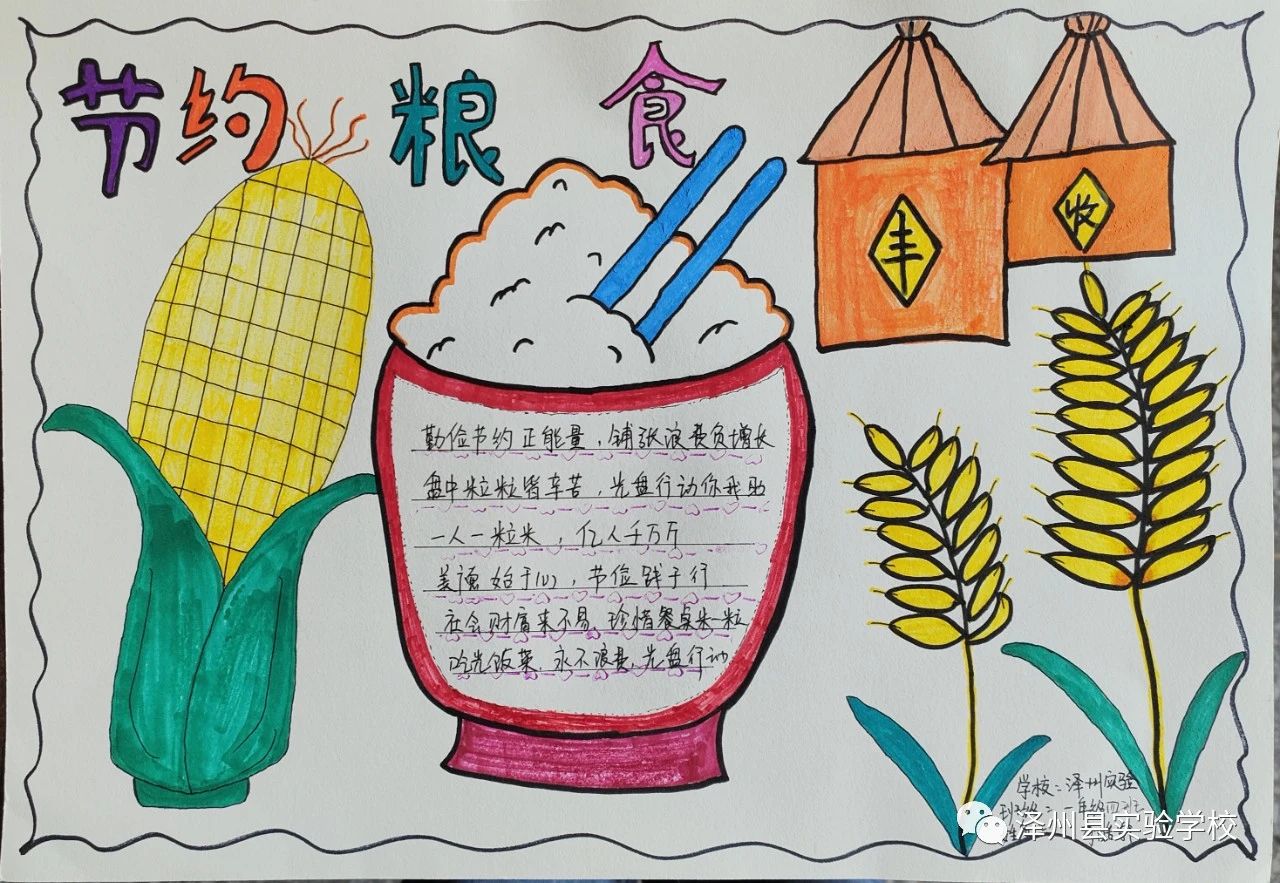 节约粮食
丰
收
勤俭节约正能量，铺张浪费负增长
盘中粒粒皆辛苦，光盘行动你我
一人一粒米，亿人千万斤
美德始于心，节俭践于行
社会财富来不易，珍惜餐桌米一粒
吃光饭菜，永不浪费，光盘行动
学校：泽州实验
班级：一年级四班
泽州县实验学校